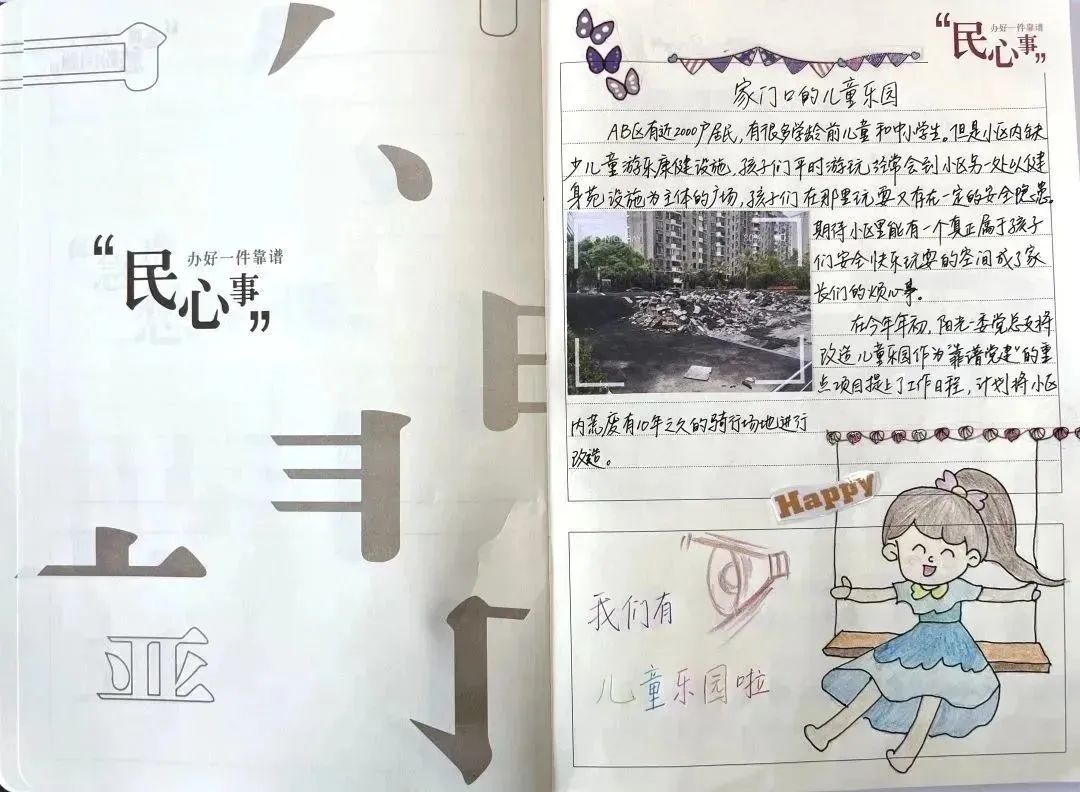 办好一件靠谱
“民心事”
亚
办好一件靠谱
“民心事”
家门口的儿童乐园
AB区有近2000户居民，有很多学龄前儿童和中小学生。但是小区内缺
少儿童游乐康健设施，孩子们平时游玩经常会到小区另一处以健
身苑设施为主体的广场，孩子们在那里玩耍又存在一定的安全隐患。
期待小区里能有一个真正属于孩子
们安全快乐玩耍的空间成了家
长们的烦心事。
在今年年初，阳光一委党总支将
改造儿童乐园作为“靠谱党建”的重
点项目提上了工作日程，计划将小区
内荒废有10年之久的骑行场地进行
改造。
Happy
我们有
儿童乐园啦